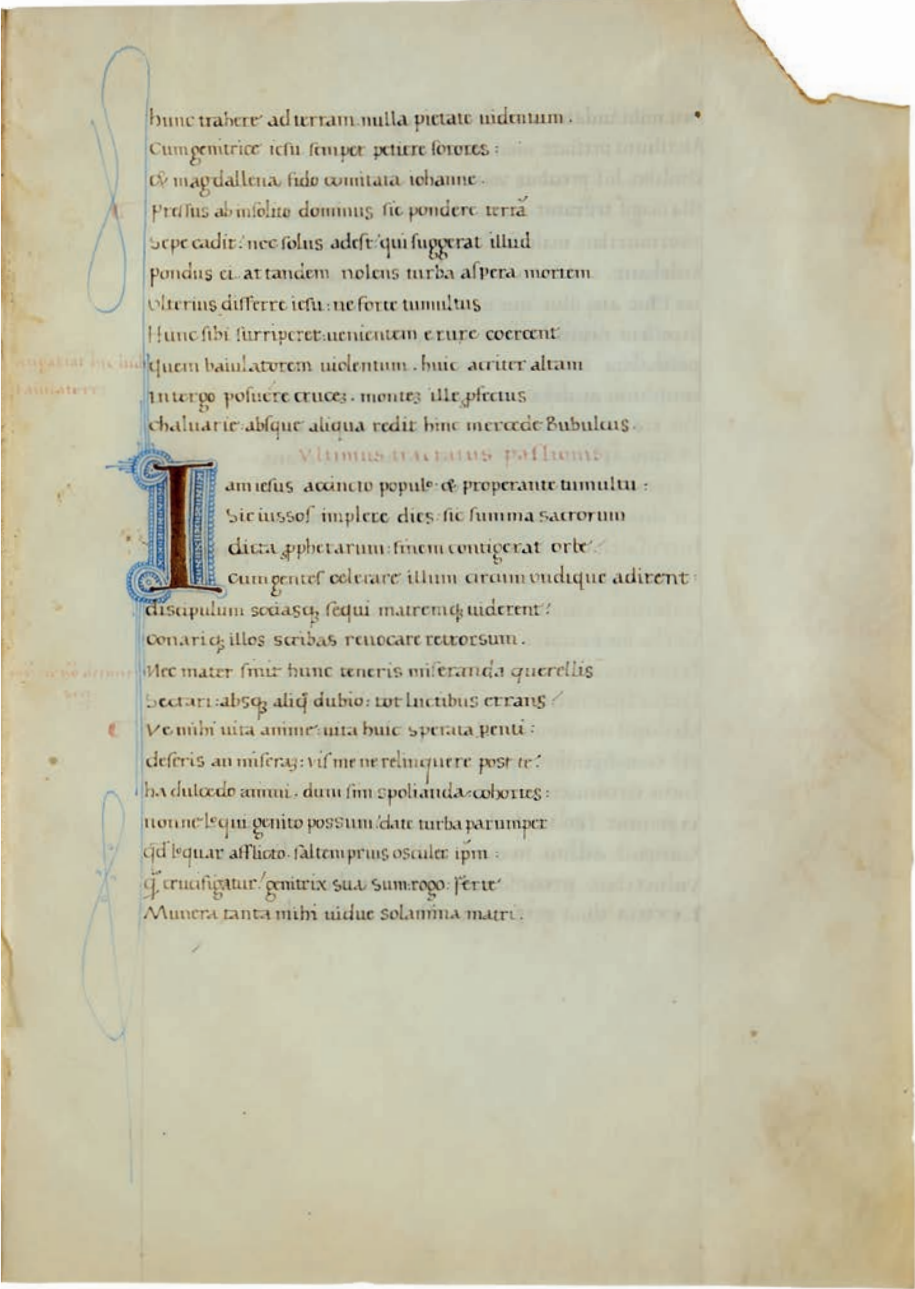 hunc trahere ad terram nulla pietate uidentum .
Cum genitrice iesu semper petiere sorores :
& magdallena fido comitata iohanne .
Pressus ab insolito dominus sic pondere terrā
Sepe cadit : nec solus adest qui suggerat illud
pondus ei at tandem nolens turba aspera mortem
vlterius differre iesu : ne forte tumultus
Hunc sibi surriperet uenientem e rure coercent
quem baiulatorem uiolentum . huic acriter altam
In tergo posuere cruceʒ . monteʒ ille ꝓfectus
chaluarie absque aliqua redit hinc mercede Bubulcus .
Vltimus tractatus passionis
Iam iesus accincto populo & properante tumultu :
Sic iussos implere dies sic summa sacrorum
dicta ꝓphetarum : finem contigerat orbe
Cum gentes celerare illum circum vndique adirent
discipulum sociasqʒ sequi matremqʒ uiderent :
conariqʒ illos scribas reuocare retrorsum .
Nec mater sinit hunc teneris miseranda querellis
Sectari : absqʒ aliq̄ dubio : tot luctibus errans
Ve mihi uita anime uita huic sperata penti :
deseris an miseraʒ : vis me ne relinquere post te :
ha dulcedo animi . dum sim spolianda cohortes :
nonne loqui genito possum date turba parumper
qd loquar afflicto . saltem prius osculer ip̄m :
q̄ crucifigatur genitrix sua sum : rogo : ferte
Munera tanta mihi uidue solamina matri .